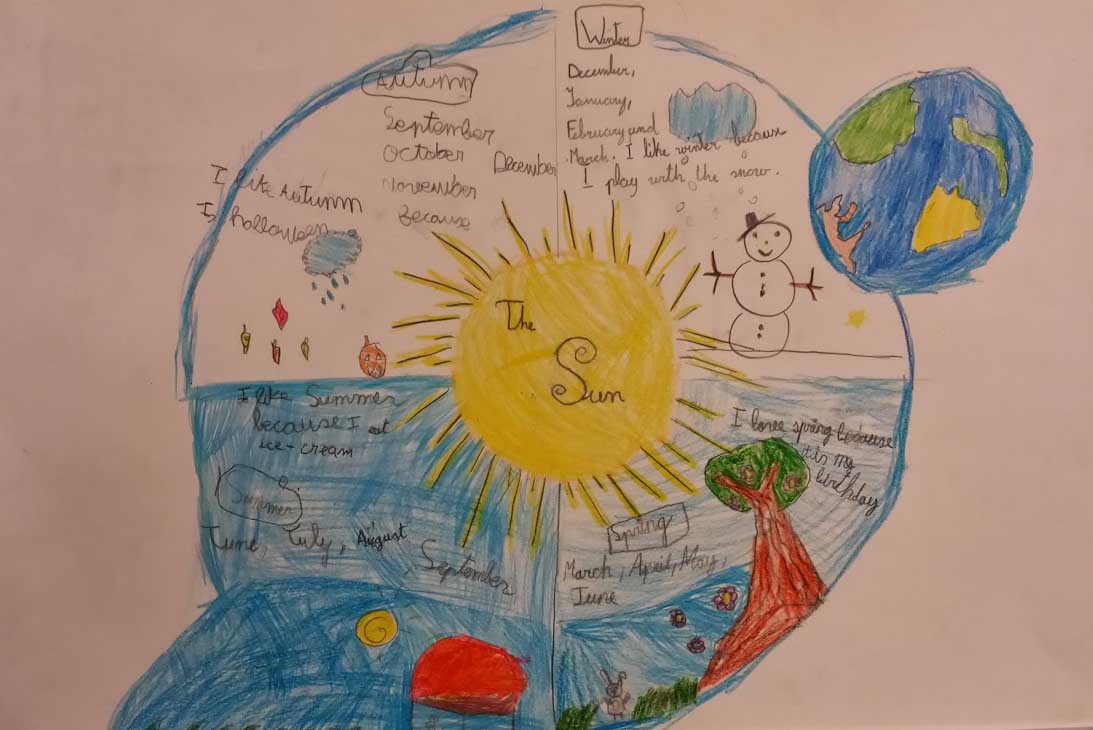 Autumn
September
October
November
December
Because
I like Autumn
Is halloween
Winter
December,
January,
February and
March. I like winter because
I play with the snow.
The
Sun
I like Summer
because I eat
ice-cream
Summer
June, July, August
September
I love spring because
it is my
birthday
Spring
March, April, May,
June